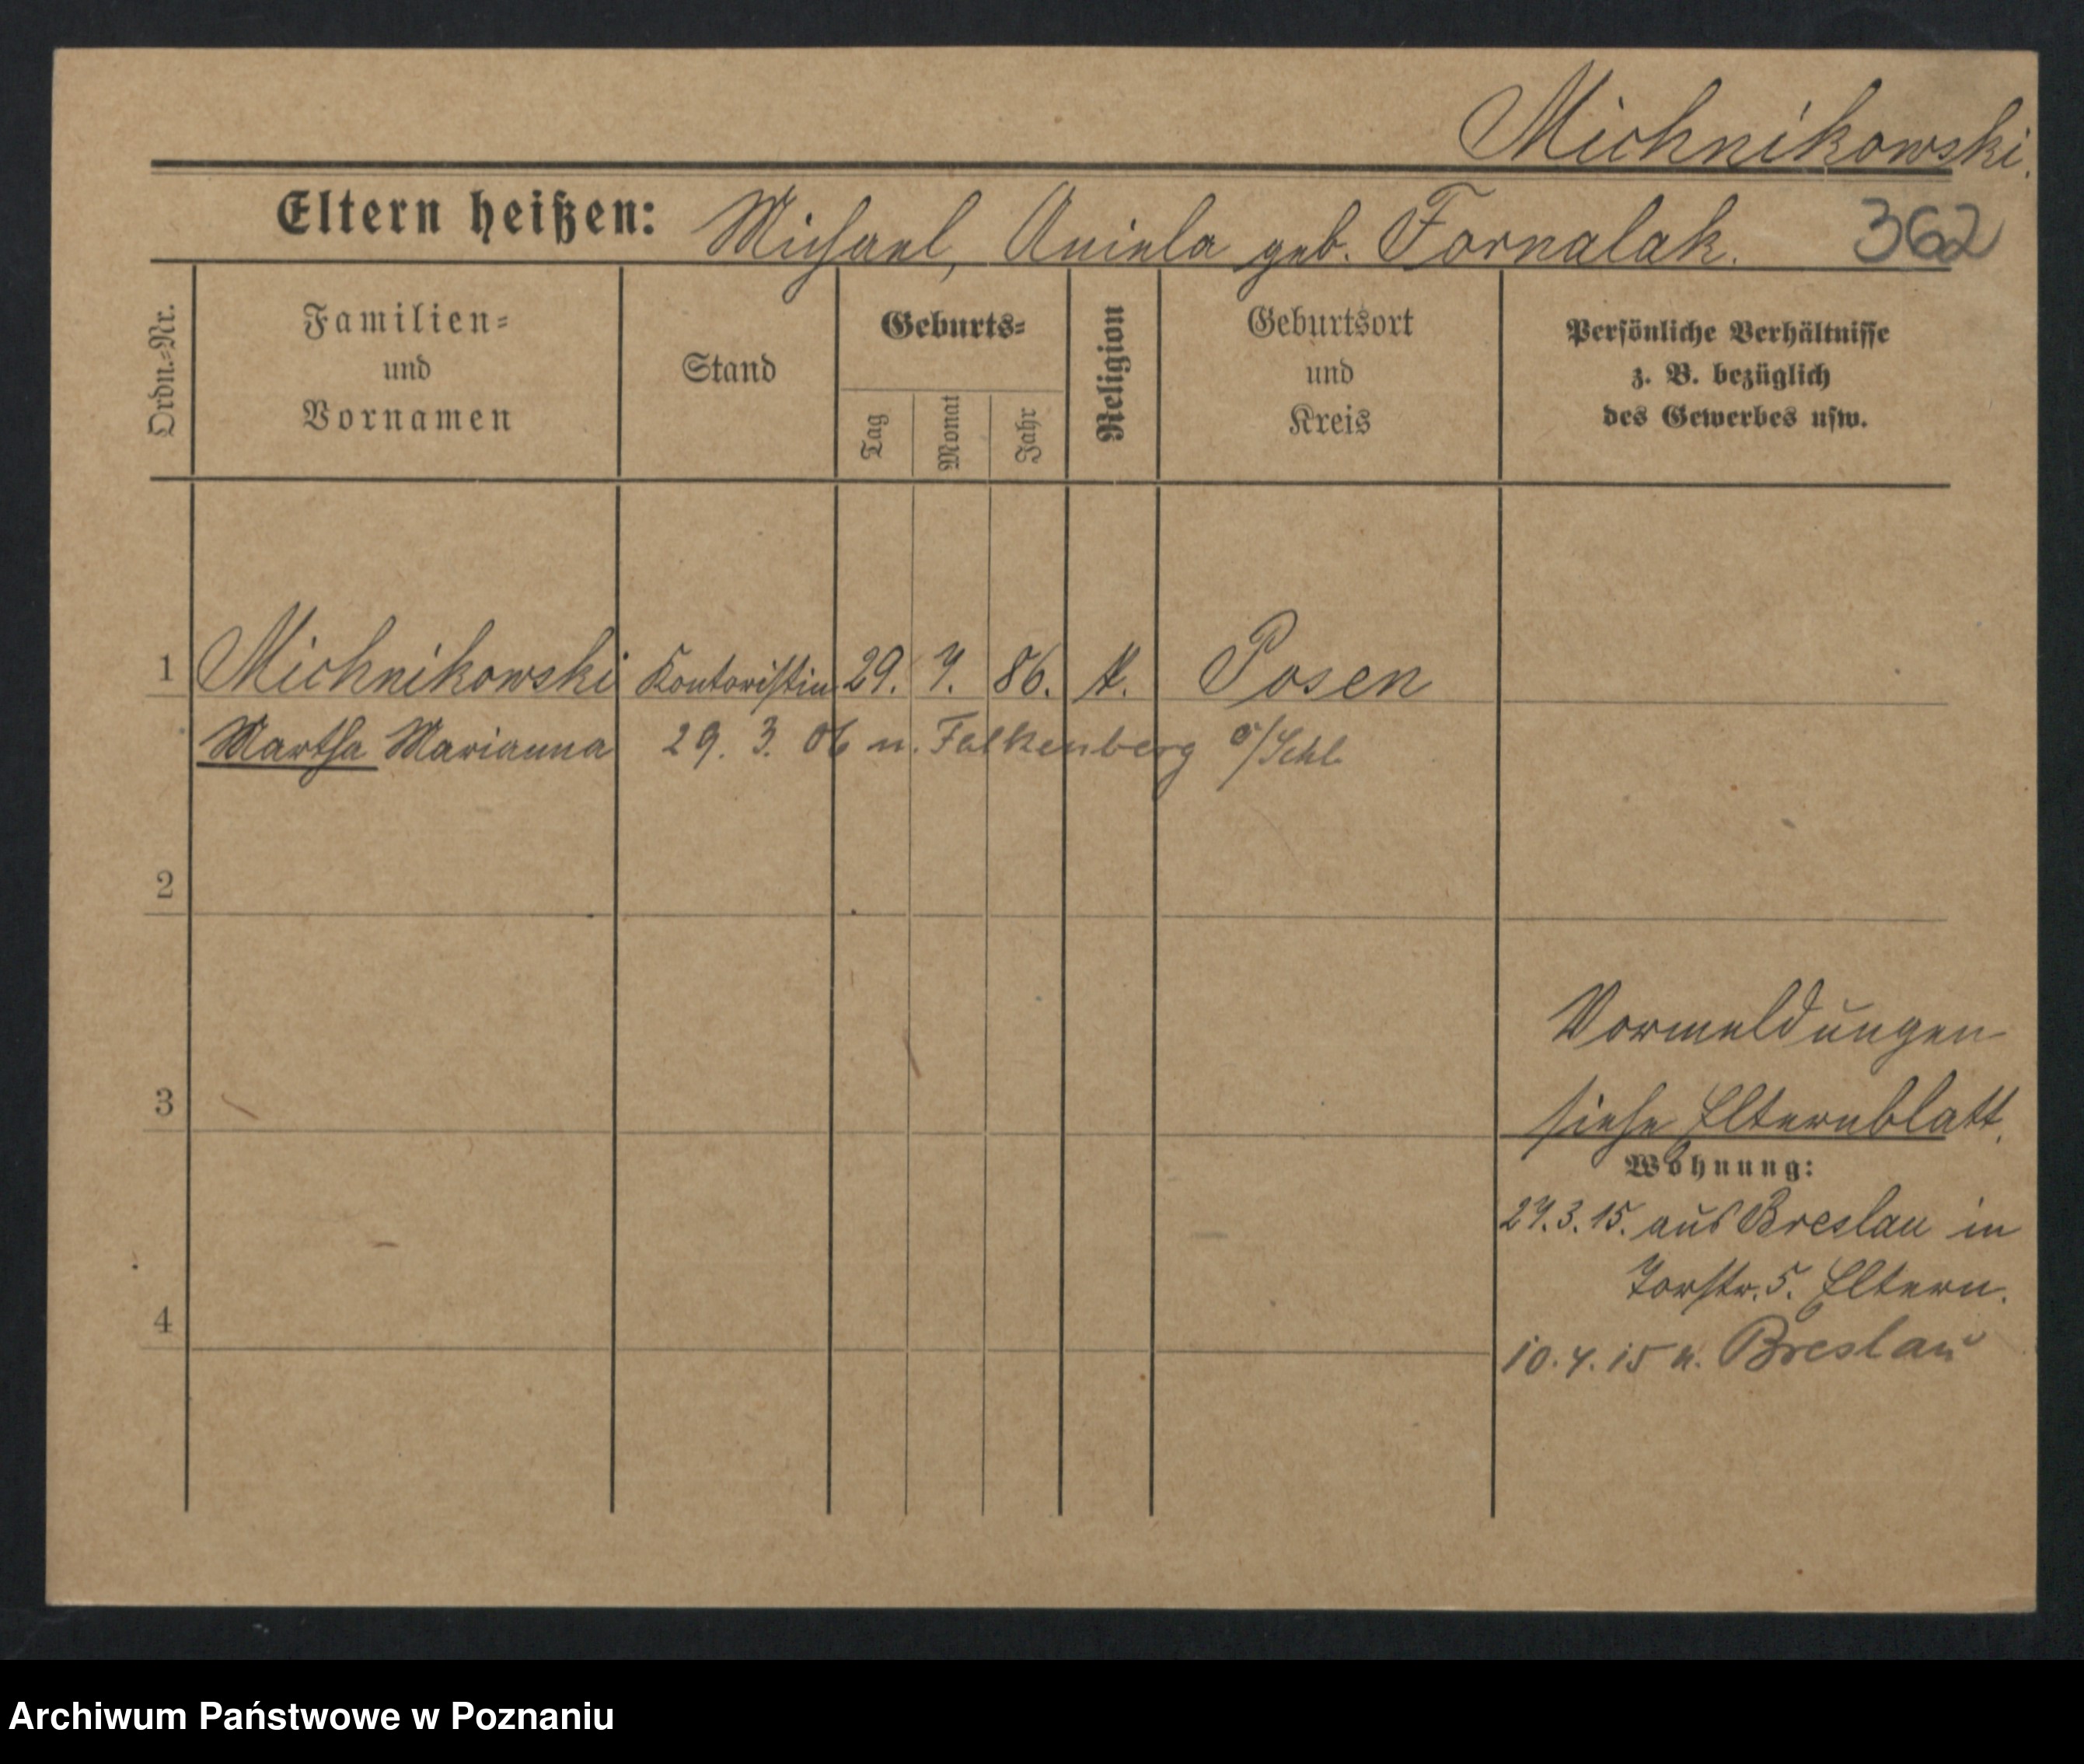 Michnikowski.
Eltern heißen: Michael, Aniela geb. Fornalak. 362
Ordn.-Nr.
Familien-
und
Vornamen
Stand
Geburts-
Tag
Monat
Jahr
Religion
Geburtsort
und
Kreis
Persönliche Verhältnisse
z. B. bezüglich
des Gewerbes usw.
1 Michnikowski Kontoristin 29. 7. 86. k. Posen
Martha Marianna 29. 3. 06 n. Falkenberg o/Schl.
2
Vormeldungen
3 siehe Elternblatt.
Wohnung:
27.3.15. aus Breslau in
Torstr. 5. Eltern.
4
10.4.15 n. Breslau
Archiwum Państwowe w Poznaniu